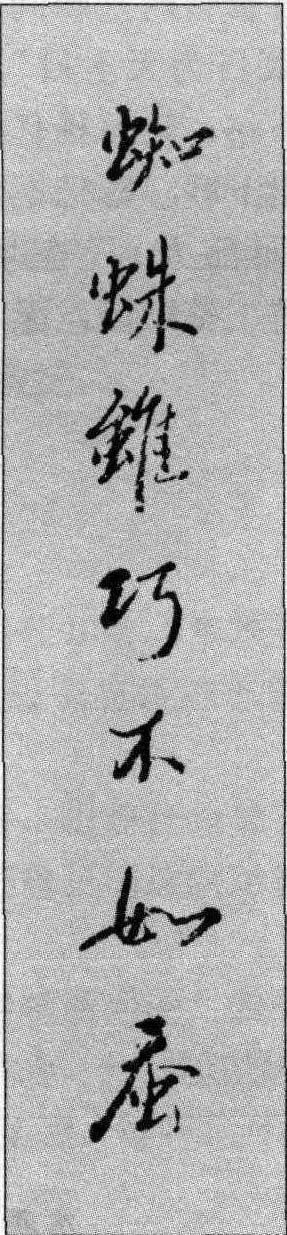 蜘蛛雖巧不如蚕